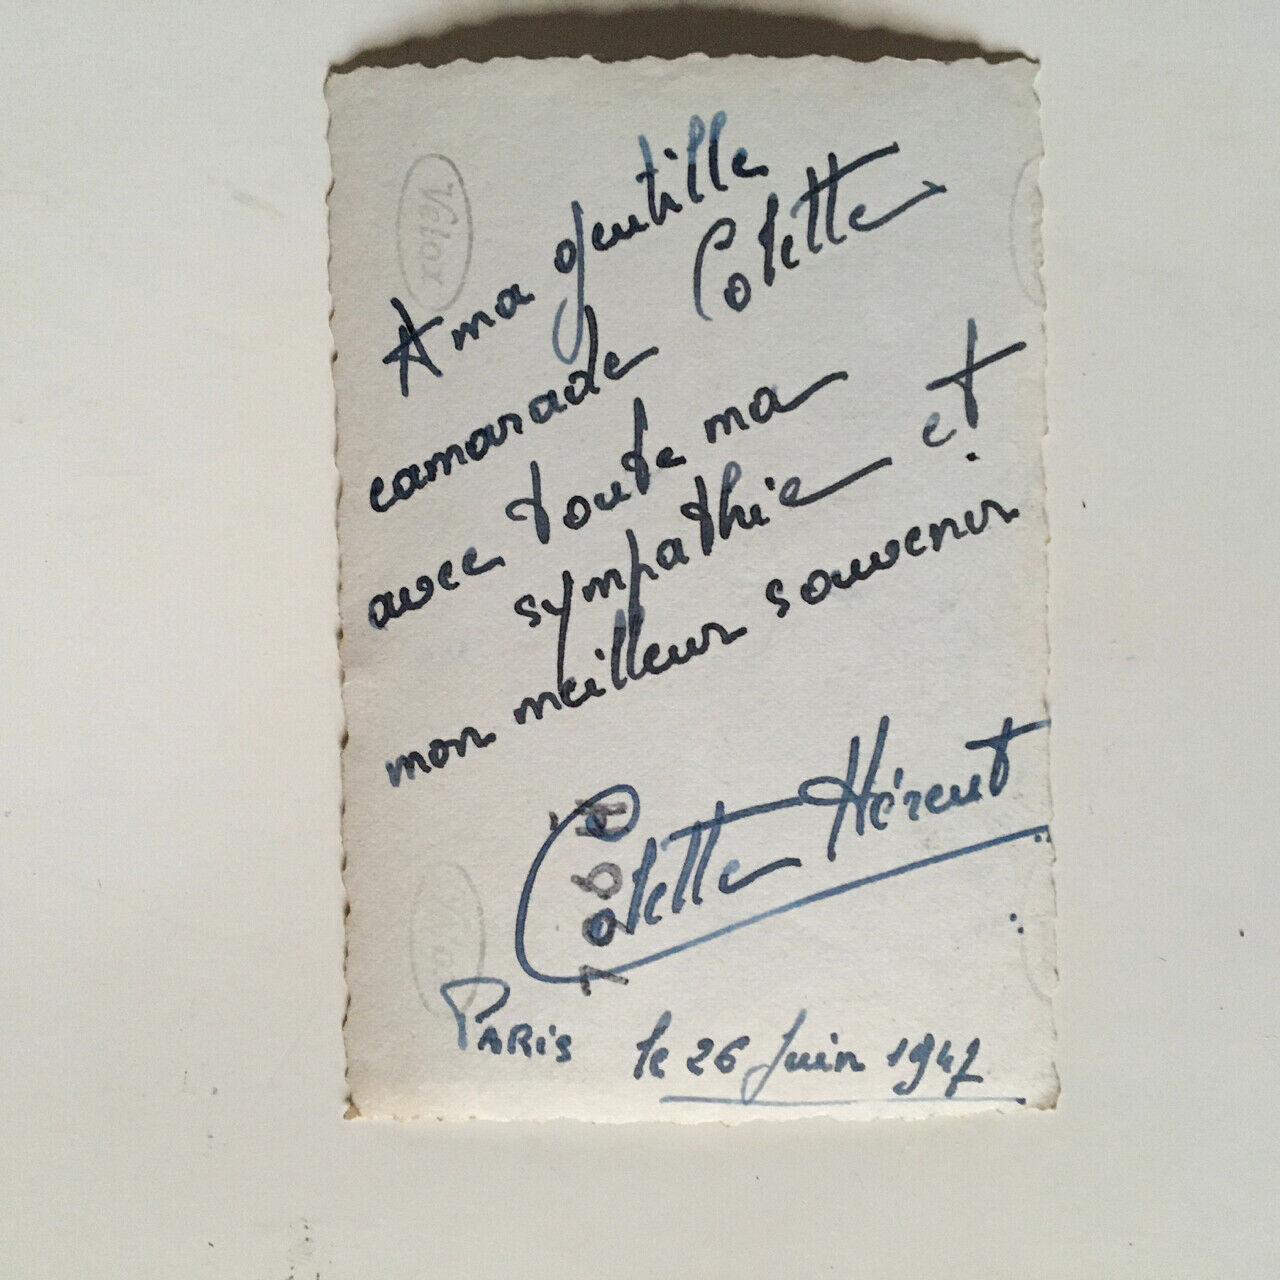 A ma gentille
camarade Colette
avec toute ma
sympathie et
mon meilleur souvenir
Colette Hérent
PARis le 26 Juin 1947
Velox
Velox